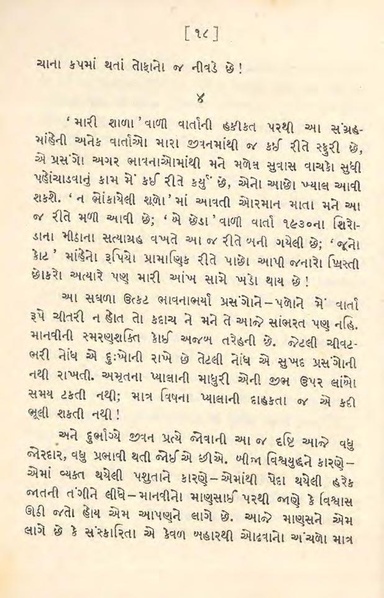 [ ૧૮ ]
ચાના કપમાં થતાં તોફાનો જ નીવડે છે!
૪
‘ મારી શાળા ’ વાળી વાર્તાની હકીકત પરથી આ સંગ્રહ-
માંહેની અનેક વાર્તાઓ મારા જીવનમાંથી જ કઈ રીતે સ્ફુરી છે,
એ પ્રસંગો અગર ભાવનાઓમાંથી મને મળેલ સુવાસ વાચકો સુધી
પહોંચાડવાનું કામ મેં કઈ રીતે કર્યું છે, એનો આછો ખ્યાલ આવી
શકશે. ‘ ન ભોંકાયેલી શૂળો ’ માં આવતી ઓરમાન માતા મને આ
જ રીતે મળી આવી છે; ‘ એ છેડા ’ વાળી વાર્તા ૧૯૩૦ના શિરો-
ડાના મીઠાના સત્યાગ્રહ વખતે આ જ રીતે બની ગયેલી છે; ‘ જૂનો
કોટ ’ માંહેનો રૂપિયો પ્રામાણિક રીતે પાછો આપી જનારો ખ્રિસ્તી
છોકરો અત્યારે પણ મારી આંખ સામે ખડો થાય છે!
આ સઘળા ઉત્કટ ભાવનાભર્યા પ્રસંગોને–પળોને મેં વાર્તા
રૂપે ચીતરી ન હોત તો કદાચ ને મને તે આજે સાંભરત પણ નહિ.
માનવીની સ્મરણશક્તિ કોઈ અજબ તરેહની છે. જેટલી ચીવટ-
ભરી નોંધ એ દુઃખોની રાખે છે તેટલી નોંધ એ સુખદ પ્રસંગોની
નથી રાખતી. અમૃતના પ્યાલાની માધુરી એની જીભ ઉપર લાંબો
સમય ટકતી નથી; માત્ર વિષના પ્યાલાની દાહકતા જ એ કદી
ભૂલી શકતી નથી!
અને દુર્ભાગ્યે જીવન પ્રત્યે જોવાની આ જ દૃષ્ટિ આજે વધુ
જોરદાર, વધુ પ્રભાવી થતી જોઈ એ છીએ. બીજા વિશ્વયુદ્ધને કારણે–
એમાં વ્યક્ત થયેલી પશુતાને કારણે–એમાંથી પેદા થયેલી હરેક
જાતની તંગીને લીધે–માનવીનો માણસાઈ પરથી જાણે કે વિશ્વાસ
ઊડી જતો હોય એમ આપણને લાગે છે. આજે માણસને એમ
લાગે છે કે સંસ્કારિતા એ કેવળ બહારથી ઓઢવાનો અંચળો માત્ર